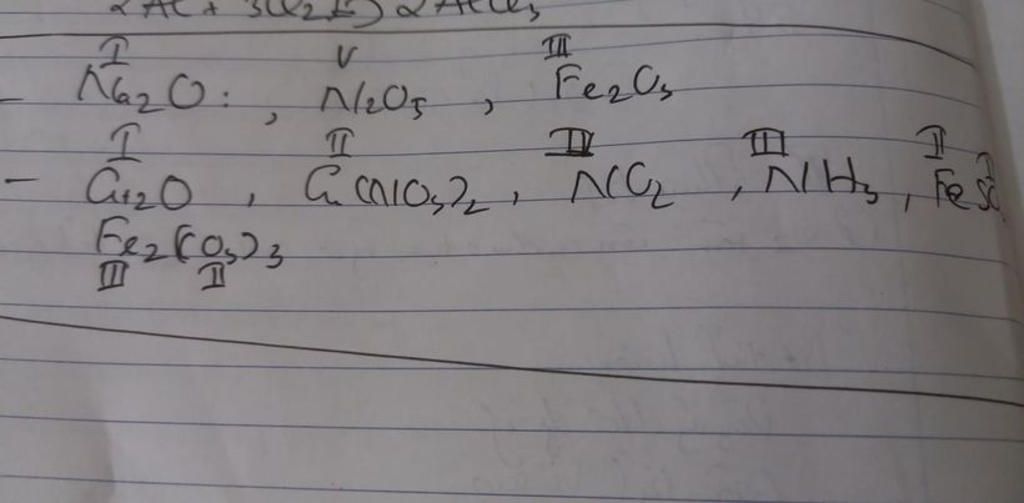 2Al + 3Cl2 → 2AlCl3
I V III
Na2O : , N2O5 , Fe2O3
I II IV III II
- Cu2O , Cu(NO3)2 , NO2 , NH3 , FeS
Fe2(CO3)3
III II